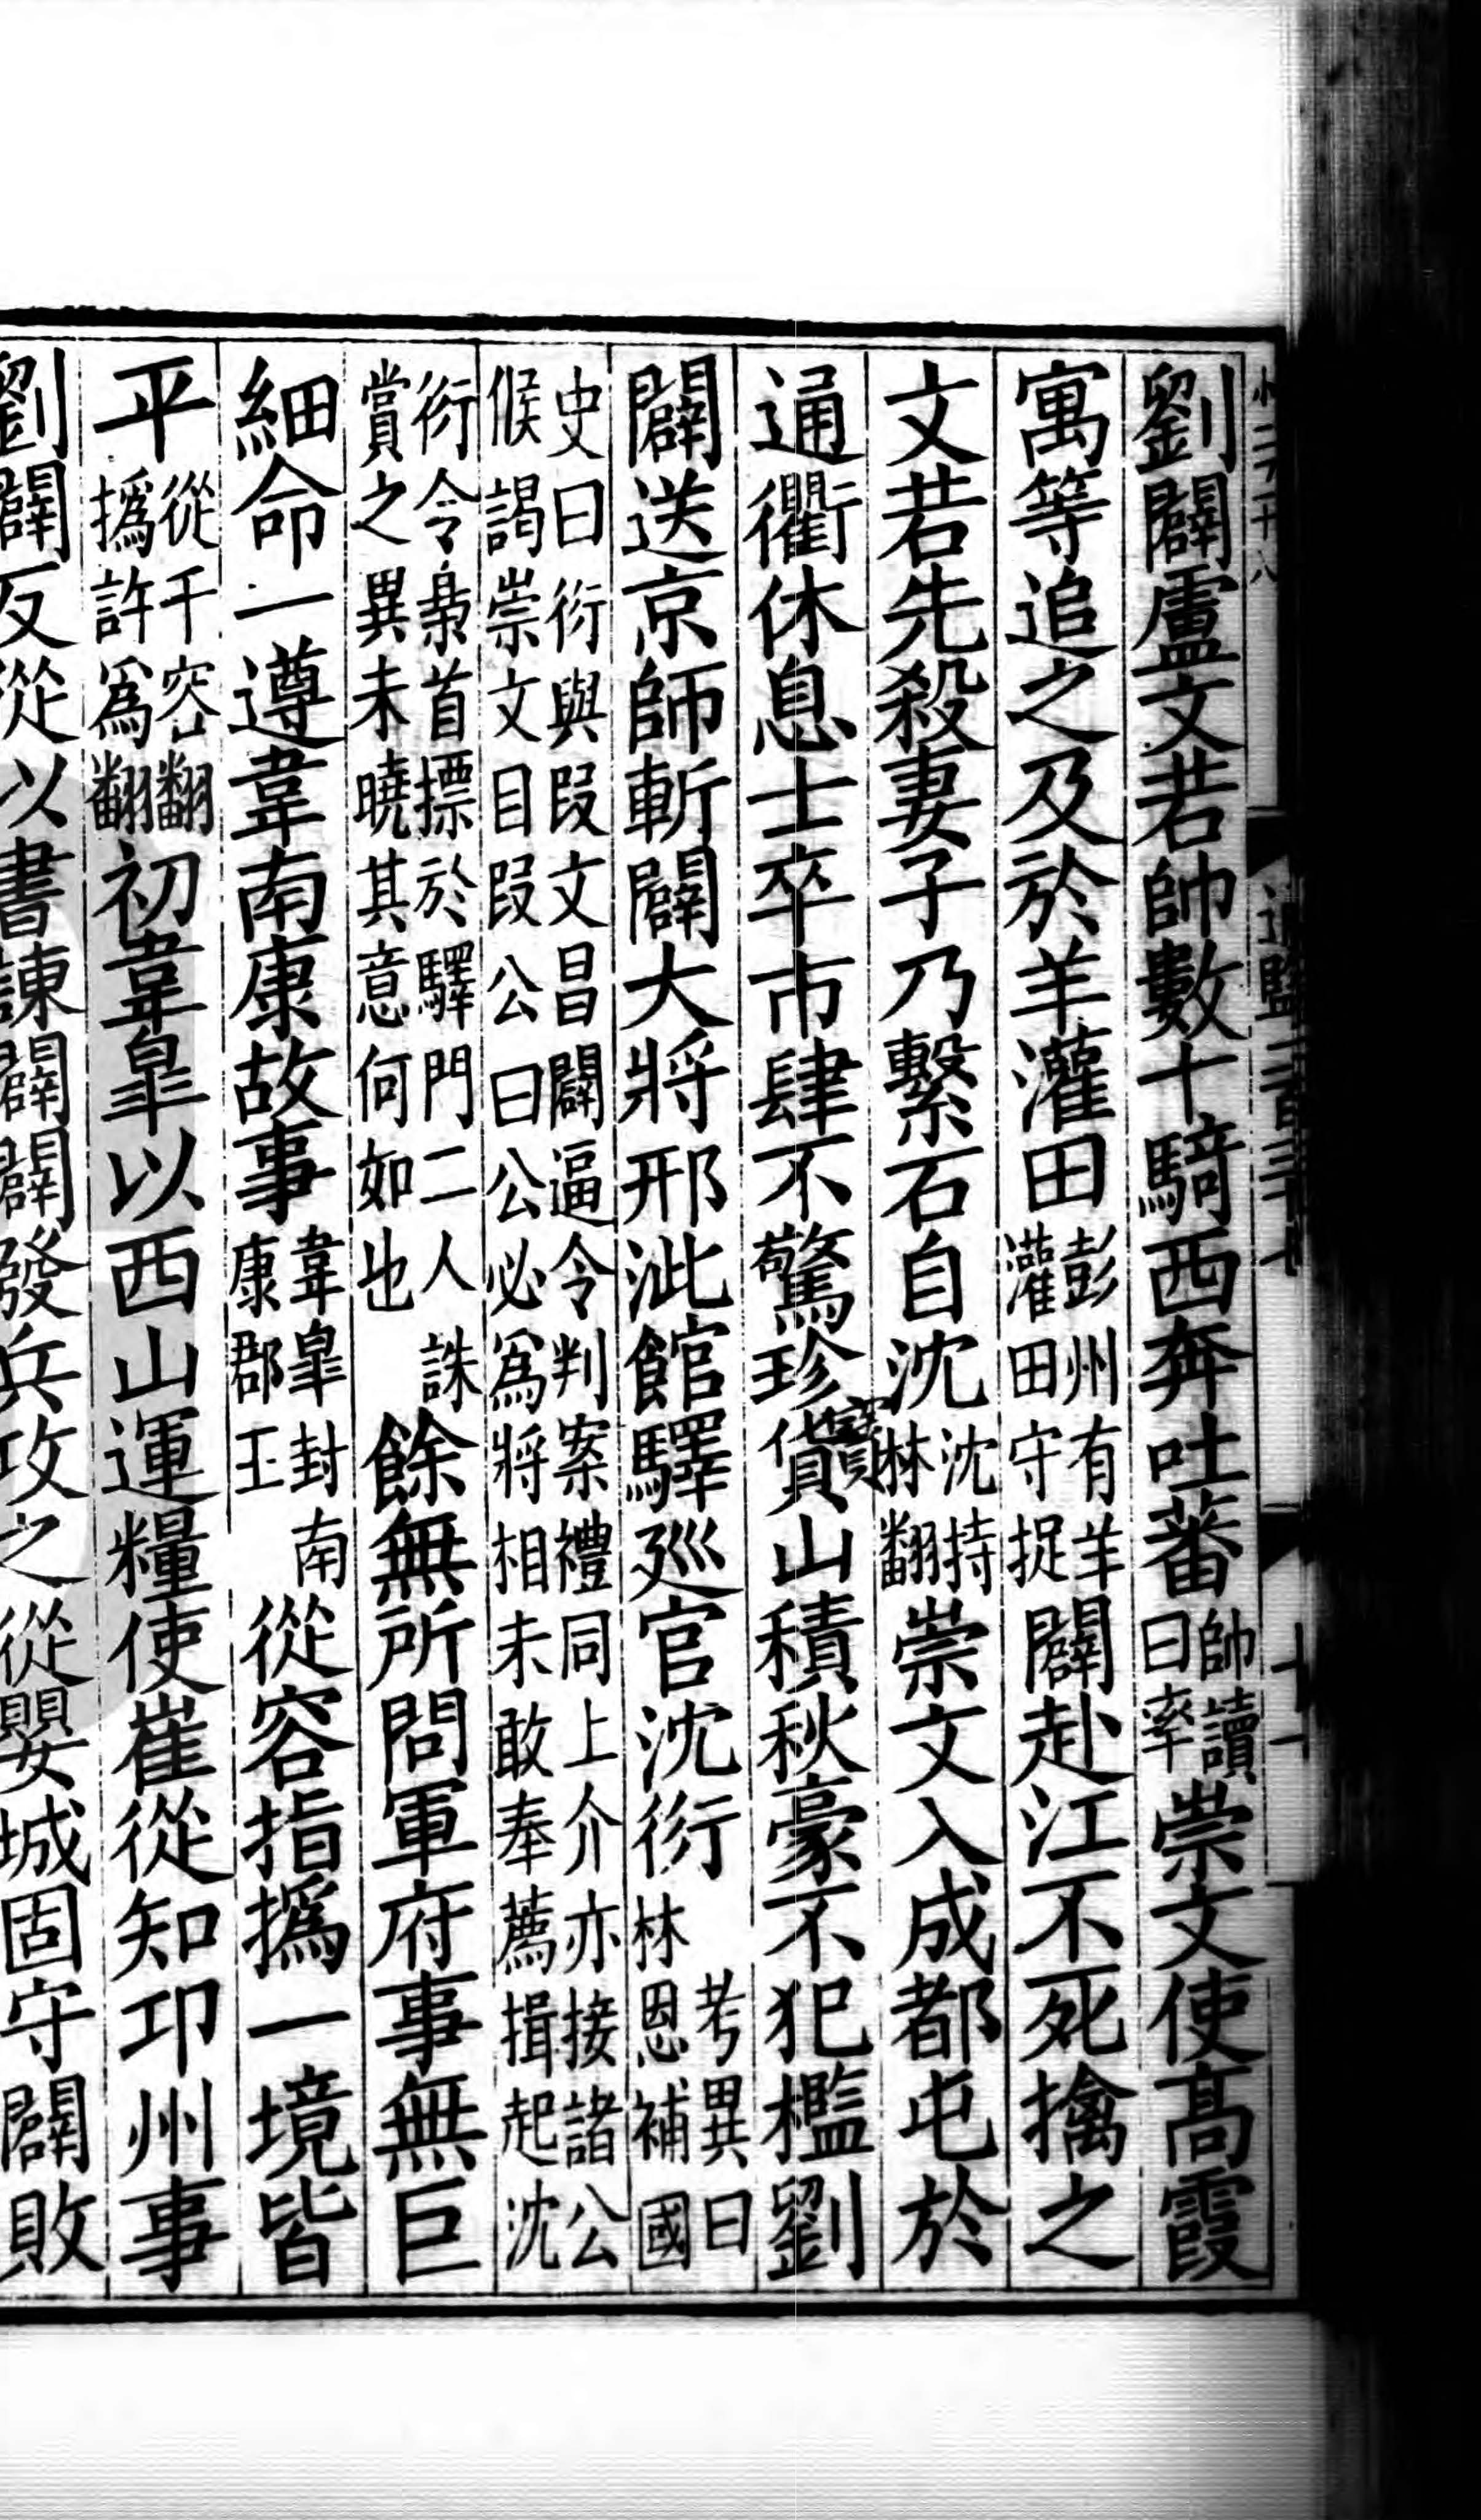 劉闢盧文若帥數十騎西奔吐蕃帥讀曰率崇文使高霞
寓等追之及於羊灌田彭州有羊灌田守捉闢赴江不死擒之
文若先殺妻子乃繫石自沈沈持林翻崇文入成都屯於
通衢休息士卒市肆不驚珍貨山積秋豪不犯檻劉
闢送京師斬闢大將邢泚館驛巡官沈衍考異曰林恩補國
史曰衍與叚文昌闢逼令判案禮同上介亦接諸公候謁崇文目叚公曰公必爲將相未敢奉薦揖起沈
衍令梟首摽於驛門二人誅賞之異未曉其意何如也餘無所問軍府事無巨
細命一遵韋南康故事韋皐封南康郡王從容指撝一境皆
平從千容翻撝許爲翻初韋皐以西山運糧使崔從知邛州事
劉闢反從以書諫闢闢發兵攻之從嬰城固守闢敗